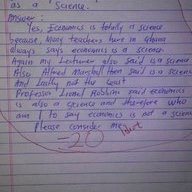 as a Science.
Answer
Yes, Economics is totally a science
because, Many teachers here in Ghana
always says economics is a science.
Again my Lecturer also said is a science
Also Alfred Marshall them said is a science
And lastly not the least
Professor Lionel Robbins said economics
is also a science and therefore who
am I to say economics is not a science
Please consider me
-20